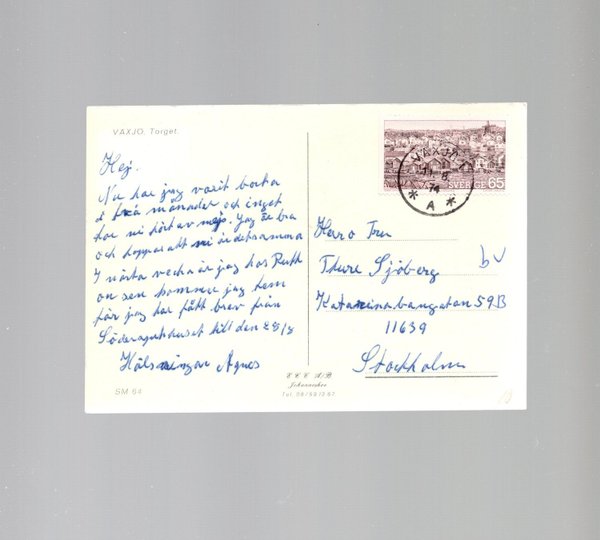 VÄXJÖ. Torget.
Hej.
Nu har jag varit borta
i två månader och inget
har ni hört av mej. Jag är bra
och hoppas att ni är detsamma
I nästa vecka är jag hos Ruth
on sen kommer jag hem
för jag har fått brev från
Södersjukhuset till den
Hälsningar Agnes
SM 64
VÄXJÖ 1
74
* A *
SVERIGE 65
Herr o Fru
Thure Sjöberg
bv
Katarinabangatan 59B
11639
Stockholm
Johanneshov